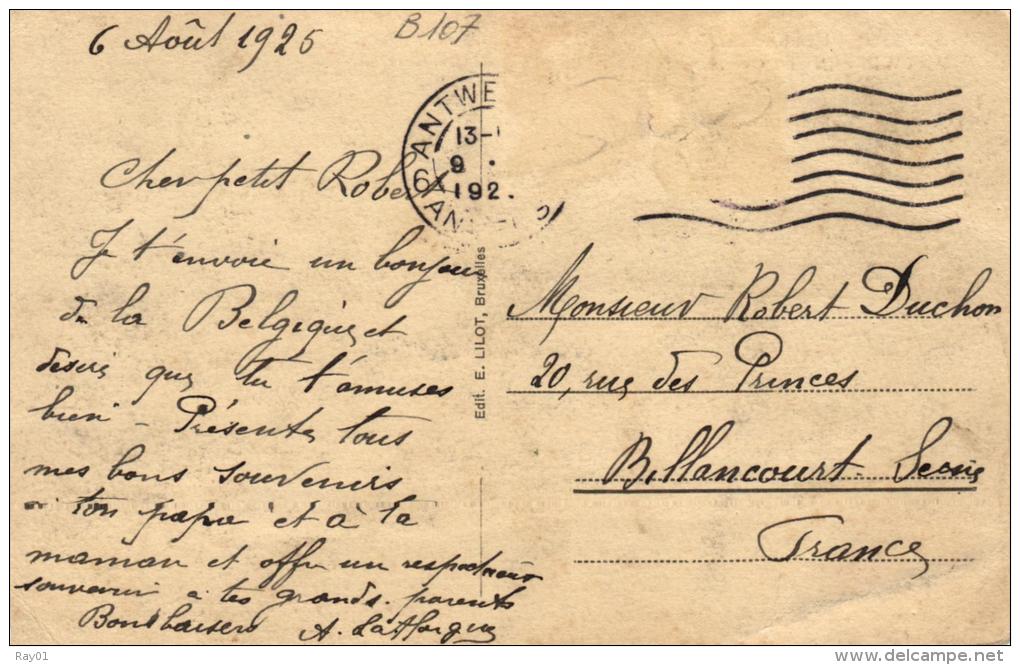 6 Août 1925
B107
ANTWE
13-
9 .
192.
6 AN
Cher petit Robert
Je t'envoie un bonjour
de la Belgique et
désire que tu t'amuses
bien - Présente tous
mes bons souvenirs
à ton papa et à ta
maman et offre un respectueux
souvenir à tes grands-parents
Bons baisers A. Laffargue
Edit. E. LILOT, Bruxelles
Monsieur Robert Duchon
20, rue des Princes
Billancourt. Seine
France
Ray01
delcampe.net